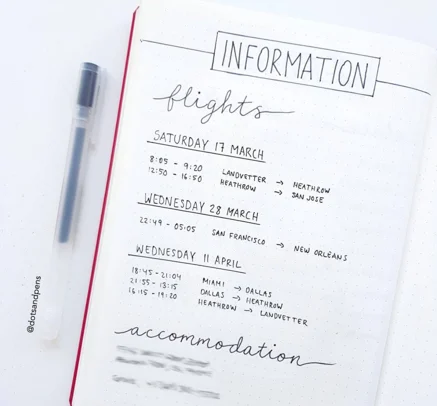 INFORMATION
flights
SATURDAY 17 MARCH
8:05 - 9:20 LANDVETTER → HEATHROW
12:50 - 16:50 HEATHROW → SAN JOSE
WEDNESDAY 28 MARCH
22:49 - 05:05 SAN FRANCISCO → NEW ORLEANS
WEDNESDAY 11 APRIL
18:45 - 21:04 MIAMI → DALLAS
21:55 - 13:15 DALLAS → HEATHROW
16:15 - 19:20 HEATHROW → LANDVETTER
accommodation
@dotsandpens